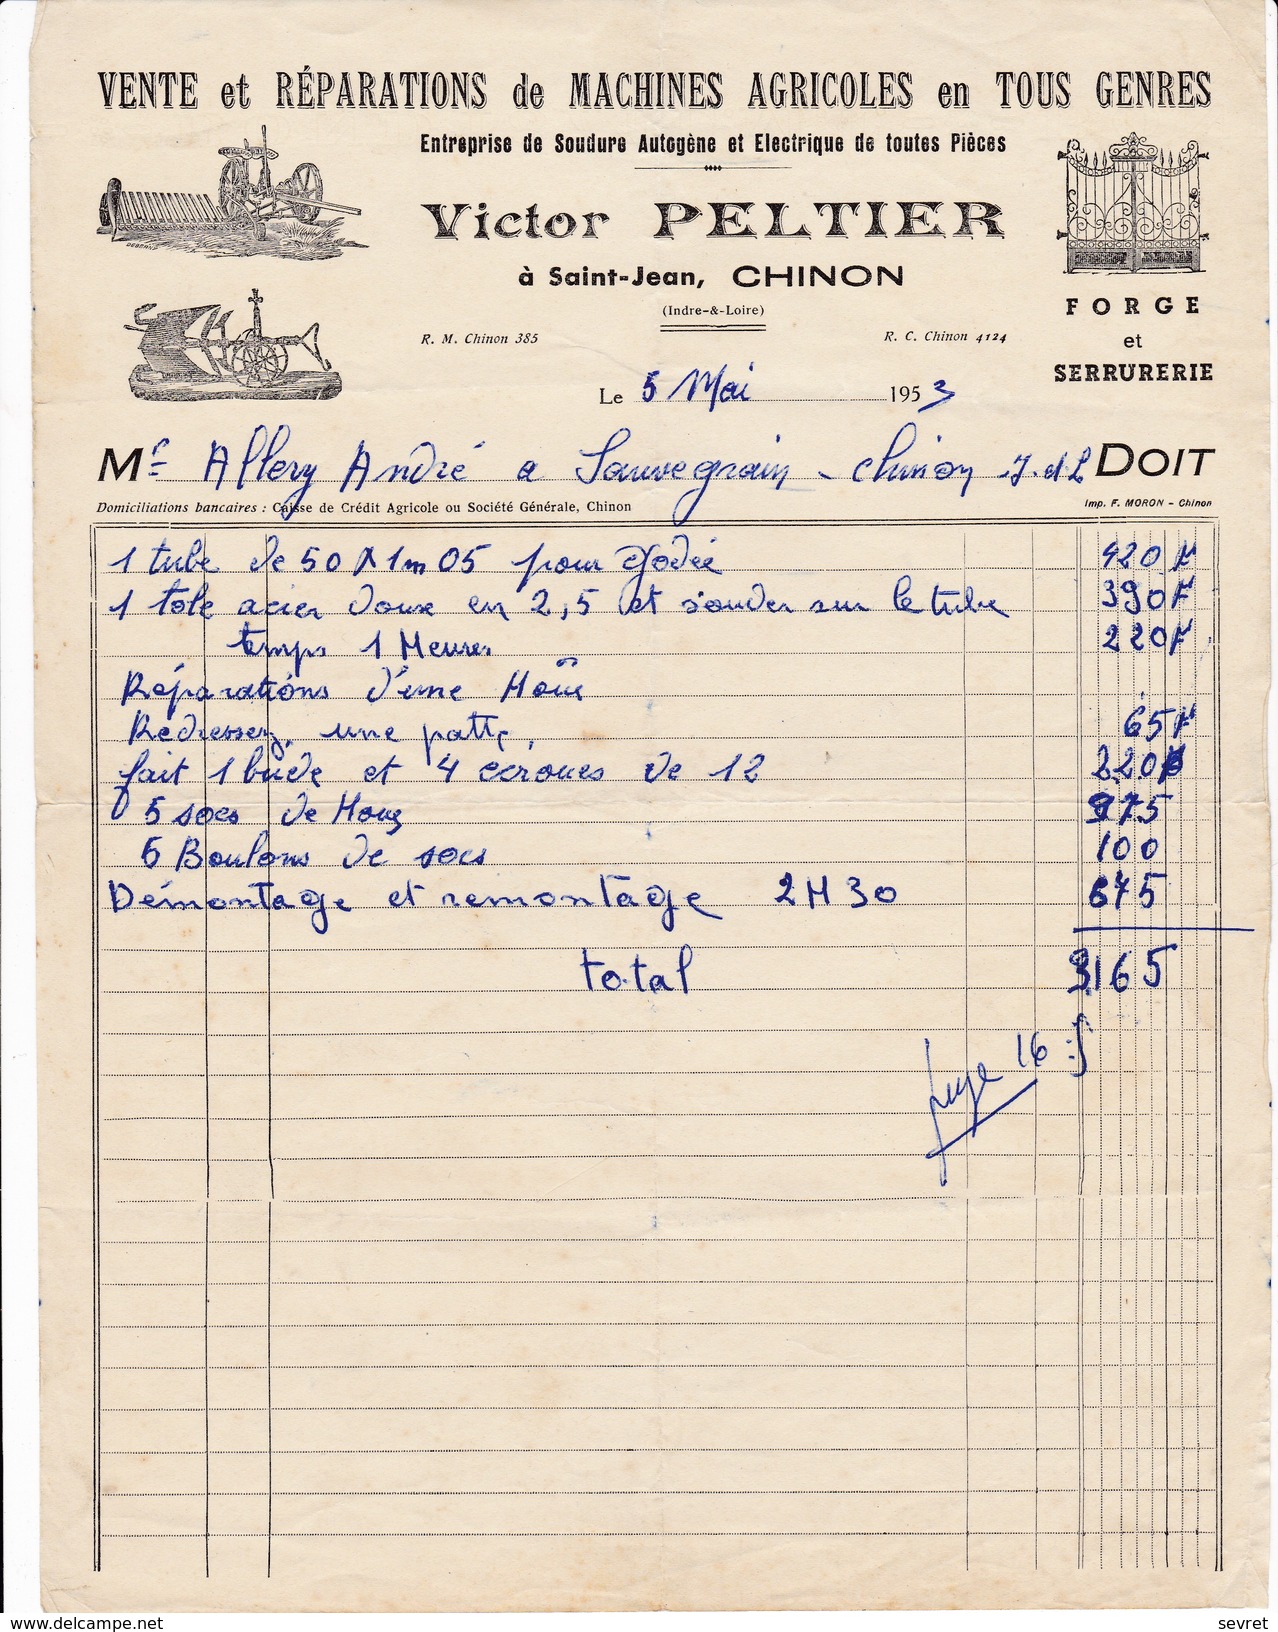 VENTE et RÉPARATIONS de MACHINES AGRICOLES en TOUS GENRES
Entreprise de Soudure Autogène et Electrique de toutes Pièces
Victor PELTIER
à Saint-Jean, CHINON
(Indre-&-Loire)
R. M. Chinon 385
R. C. Chinon 4124
FORGE
et
SERRURERIE
Le 5 Mai 1953
Mr Allery André a Sauvegrain - Chinon I. et L DOIT
Domiciliations bancaires : Caisse de Crédit Agricole ou Société Générale, Chinon
Imp. F. MORON - Chinon
1 tube de 50 X 1m 05 pour 420 F
1 tole acier doux en 2,5 et souder sur le tube 390 F
temps 1 Heures 220 F
Réparations d'une Houe
Redresser, une patte, 65 F
fait 1 bride et 4 ecroues de 12 220
5 socs de Houe 975
5 Boulons de socs 100
Démontage et remontage 2H30 675
total 3165
16
delcampe.net
sevret